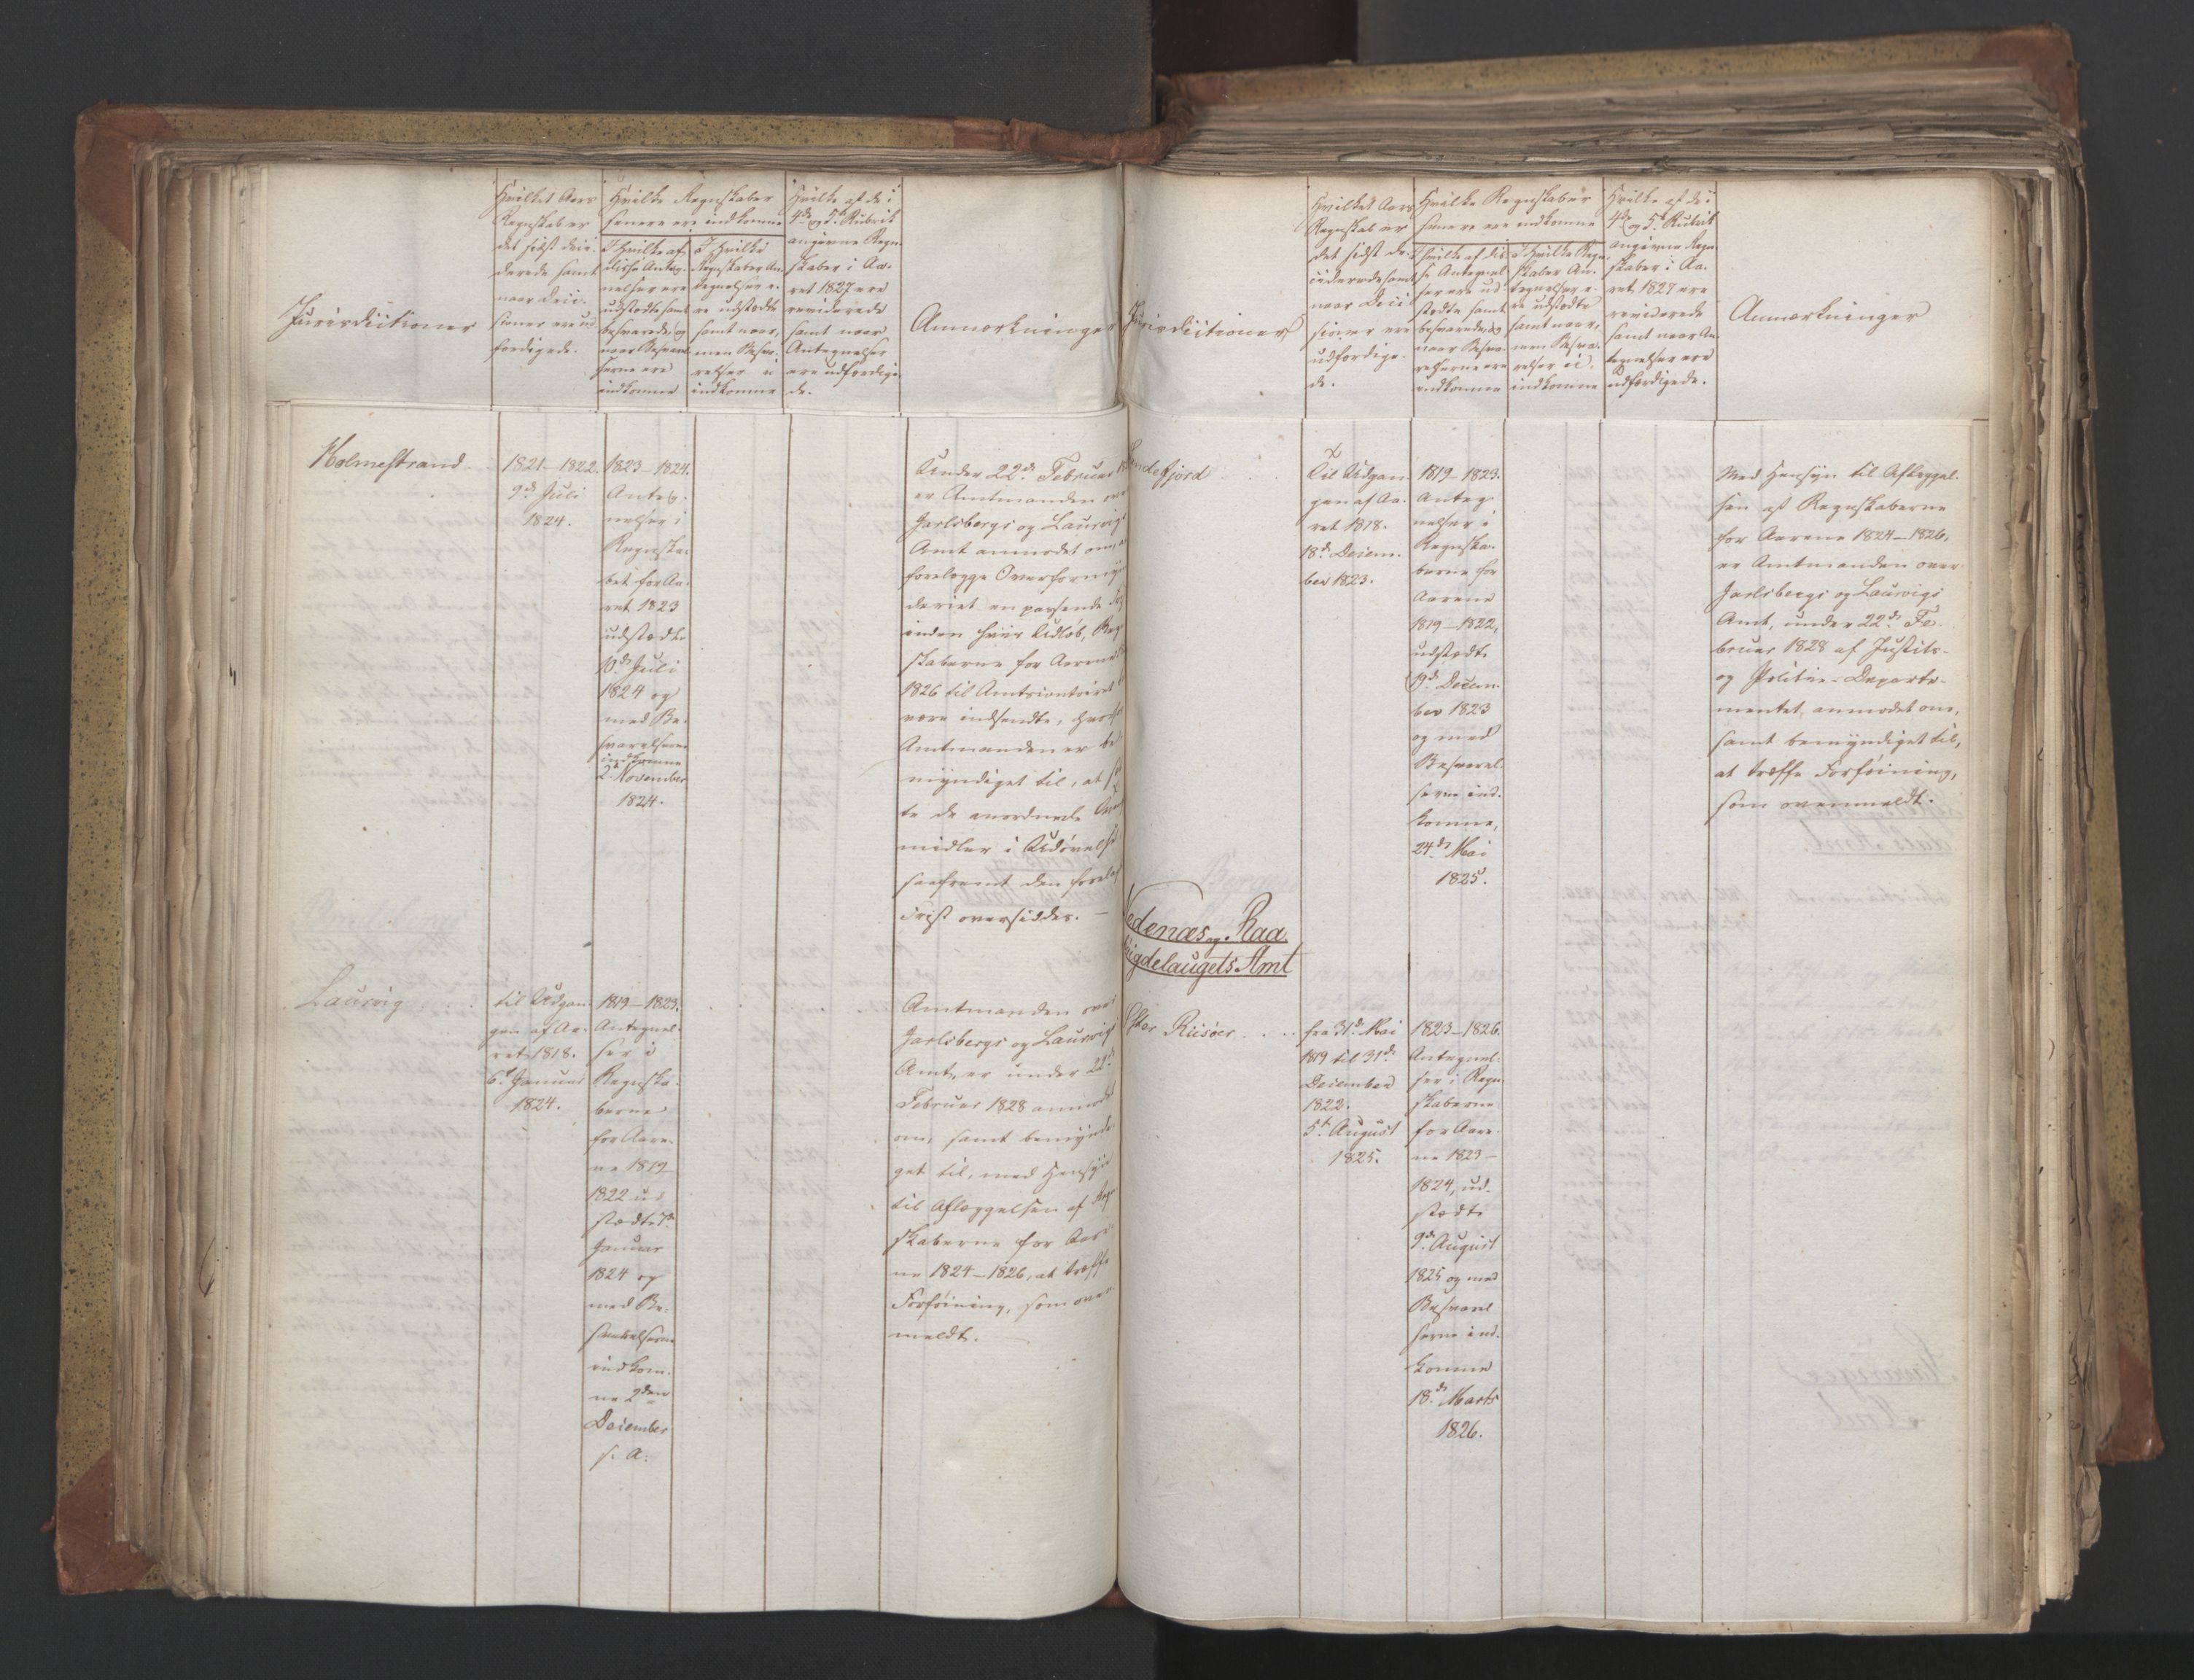 Jurisdictioner
Hvilket Aars
Regnskab er
det sidst deci-
derede samt
naar Deci-
sioner ere ud-
færdigede.
Hvilke Regnskaber
senere ere indkomne
I hvilke af
disse Anteg-
nelser ere
udstædte samt
besvarede, og
naar Besvarel-
serne ere
indkomne
I hvilke
Regnskaber An-
tegnelser e-
re udstædte
samt naar,
men Besva-
relser ei
indkomne
Hvilke af de i
4de og 5te Rubrik
angivne Regn-
skaber i Aa-
ret 1827 ere
reviderede
samt naar
Antegnelser
ere udfærdige-
de.
Anmærkninger
Holmestrand
1821-1822.
9de Juli
1824.
1823-1824.
Anteg-
nelser i
Regnska-
bet for Aa-
ret 1823
udstædte
10de Juli
1824 og
med Be-
svarelserne
indkomne
2de November
1824.
Under 22de Februar
er Amtmanden over
Jarlsbergs og Laurvigs
Amt anmodet om, at
forelægge Overformyn-
deriet en passende Frist
inden hvis Udløb, Regn-
skaberne for Aarene
1826 til Amtscontoiret
være indsendte, hvorhos
Amtmanden er be-
myndiget til, at sæt-
te de anordnede
midler i Udøvelse,
saafremt den forelagte
Frist oversiddes. —
Laurvig
til Udgan-
gen af Aa-
ret 1818.
6te Januar
1824.
1819-1823.
Antegnel-
ser i
Regnska-
berne
for Aare-
ne 1819
1822 ud-
stædte 7de
Januar
1824 og
med Be-
svarelserne
indkom-
ne 2den
December
s. A.
Amtmanden over
Jarlsbergs og Laurvigs
Amt, er under 22de
Februar 1828 anmodet
om, samt bemyndi-
get til, med Hensyn
til Aflæggelsen af Regn-
skaberne for Aare-
ne 1824-1826, at træffe
Forføining, som oven-
meldt. —
Jurisdictioner
Hvilket Aars
Regnskab er
det sidst de-
ciderede samt
naar Deci-
sioner ere
udfærdige-
de.
Hvilke Regnskaber
senere ere indkomne
I hvilke af dis-
se Antegnel-
ser ere ud-
stædte samt
besvarede, og
naar Besva-
relserne ere
indkomne
I hvilke Regn-
skaber An-
tegnelser e-
re udstædte
samt naar,
men Besva-
relser ei
indkomne
Hvilke af de i
4de og 5te Rubrik
angivne Regn-
skaber i Aa-
ret 1827 ere
reviderede
samt naar An-
tegnelser ere
udfærdigede.
Anmærkninger
Sandefjord
Til Udgan-
gen af Aa-
ret 1818.
18de Decem-
ber 1823.
1819-1823.
Anteg-
nelser i
Regnska-
berne for
Aarene
1819-1822,
udstædte
19de Decem-
ber 1823
og med
Besvarel-
serne ind-
komne,
24de Mai
1825.
Med Hensyn til Aflæggel-
sen af Regnskaberne
for Aarene 1824-1826,
er Amtmanden over
Jarlsbergs og Laurvigs
Amt, under 22de Fe-
bruar 1828 af Justits-
og Politie-Departe-
mentet anmodet om,
samt bemyndiget til,
at træffe Forføining,
som ovenmeldt.
Nedenæs og Raa-
bøigdelaugets Amt
Øster Riisøer
fra 31de Mai
1819 til 31de
December
1822.
5te August
1825.
1823-1826.
Antegnel-
ser i Regn-
skaberne
for Aare-
ne 1823-
1824, ud-
stædte
9de August
1825 og med
Besvarel-
serne ind-
komne
18de Marts
1826.